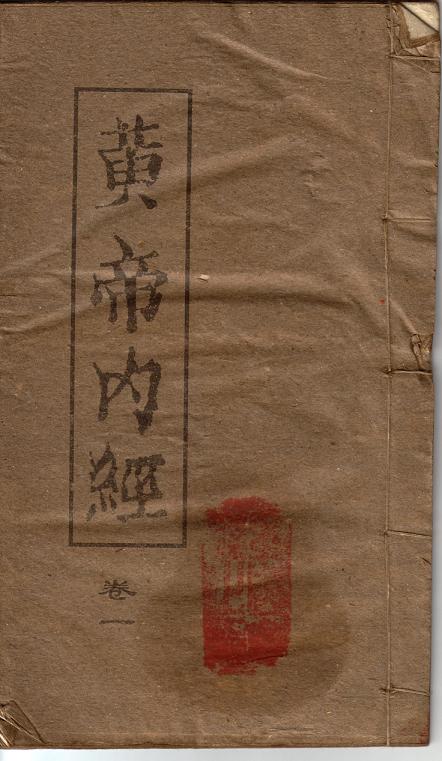 黃帝內經
卷一